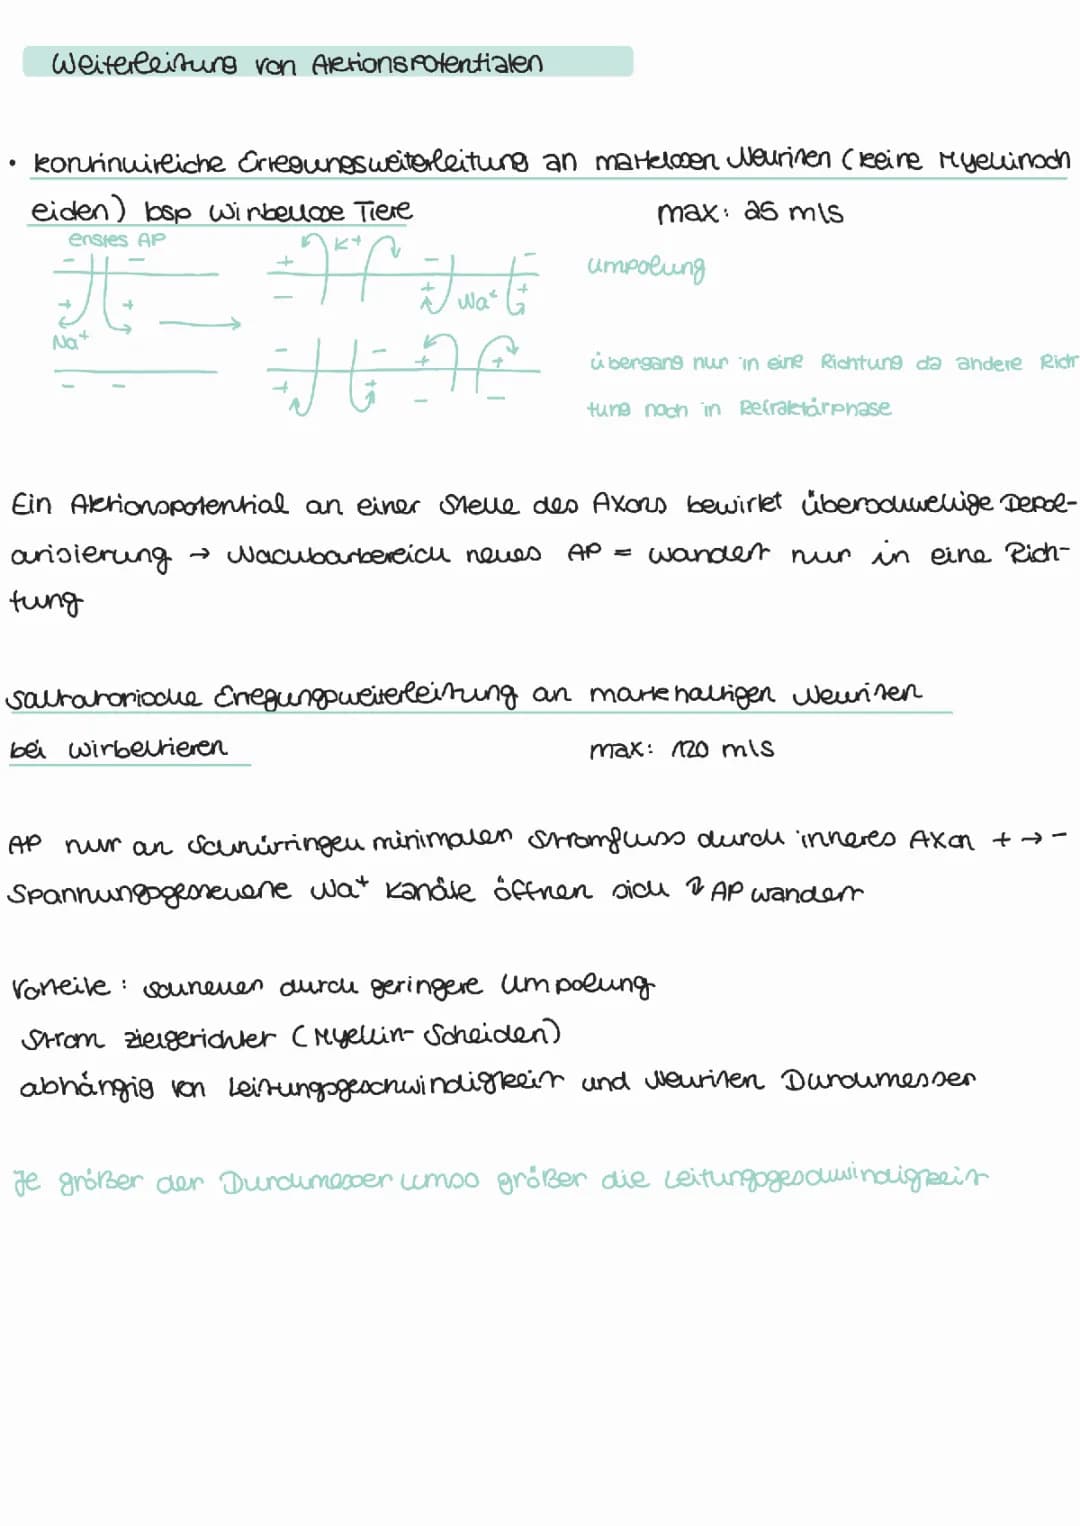 Weiterleitung von Aktionspotentialen
• kontinuirliche Erregungsweiterleitung an marklosen Neuriten (keine Myelinsch
eiden) bsp wirbellose Tiere max: 25 m/s
erstes AP
- - + K+ - -
+ + - + Na+ + Umpolung
Na+
- - - - + +
+ + - - übergang nur in eine Richtung da andere Rich
tung noch in Refraktärphase
Ein Aktionspotential an einer Stelle des Axons bewirkt überschwellige Depol-
arisierung → Nachbarbereich neues AP = wandert nur in eine Rich-
tung
saltatorische Erregungsweiterleitung an markhaltigen Neuriten
bei wirbeltieren max: 120 m/s
AP nur an Schnürringen minimalen Stromfluss durch inneres Axon + → -
Spannungsgesteuerte Na+ Kanäle öffnen sich AP wandert
Vorteile: schneller durch geringere Umpolung
Strom zielgerichtet (Myellin-Scheiden)
abhängig von Leitungsgeschwindigkeit und Neuriten Durchmesser
Je größer der Durchmesser umso größer die Leitungsgeschwindigkeit